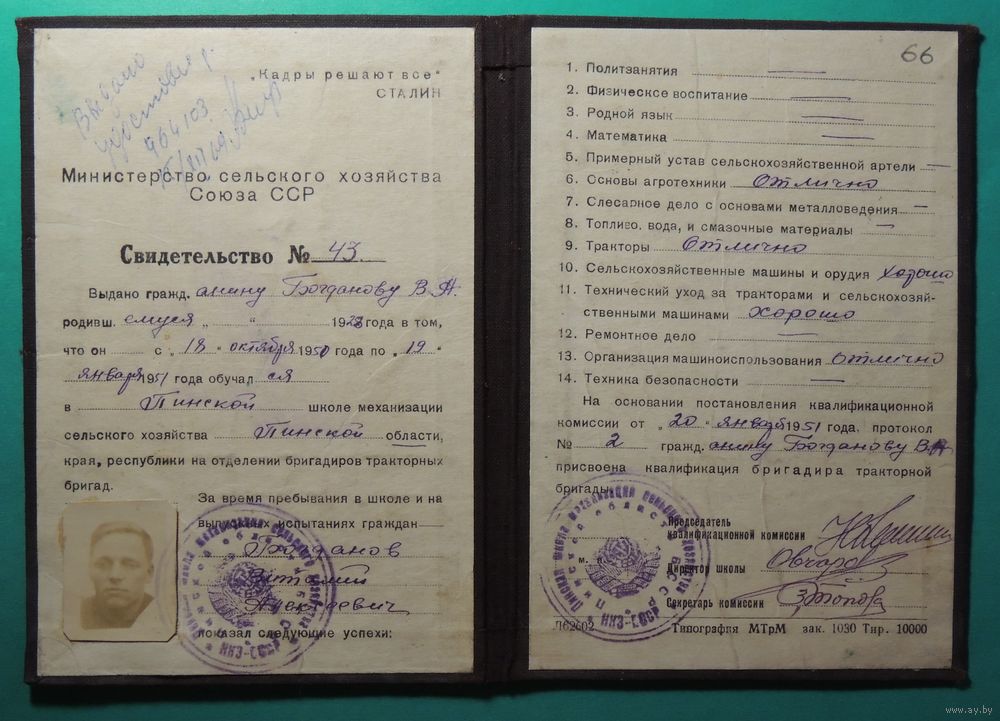 Выдано
удостовер.
964103.
„Кадры решают все“
СТАЛИН
Министерство сельского хозяйства
Союза ССР
Свидетельство № 43.
Выдано гражд. анину Богданову В.А.
родивш. емуся „ “ 1928 года в том,
что он с „18“ октября 1950 года по „19“
января 1951 года обучал ся
в Пинской школе механизации
сельского хозяйства Пинской области,
края, республики на отделении бригадиров тракторных
бригад.
За время пребывания в школе и на
выпускных испытаниях граждан
Богданов
Виталий
Алексеевич
показал следующие успехи:
66
1. Политзанятия —
2. Физическое воспитание —
3. Родной язык —
4. Математика —
5. Примерный устав сельскохозяйственной артели —
6. Основы агротехники Отлично
7. Слесарное дело с основами металловедения —
8. Топливо, вода, и смазочные материалы —
9. Тракторы Отлично
10. Сельскохозяйственные машины и орудия хорошо
11. Технический уход за тракторами и сельскохозяй-
ственными машинами хорошо
12. Ремонтное дело —
13. Организация машиноиспользования отлично
14. Техника безопасности —
На основании постановления квалификационной
комиссии от „20“ января 1951 года, протокол
№ 2 гражд. анину Богданову В.А
присвоена квалификация бригадира тракторной
бригады.
Председатель
квалификационной комиссии
м. п.
Директор школы
Секретарь комиссии
Л62602 Типография МТрМ зак. 1030 Тир. 10000
www.ay.by